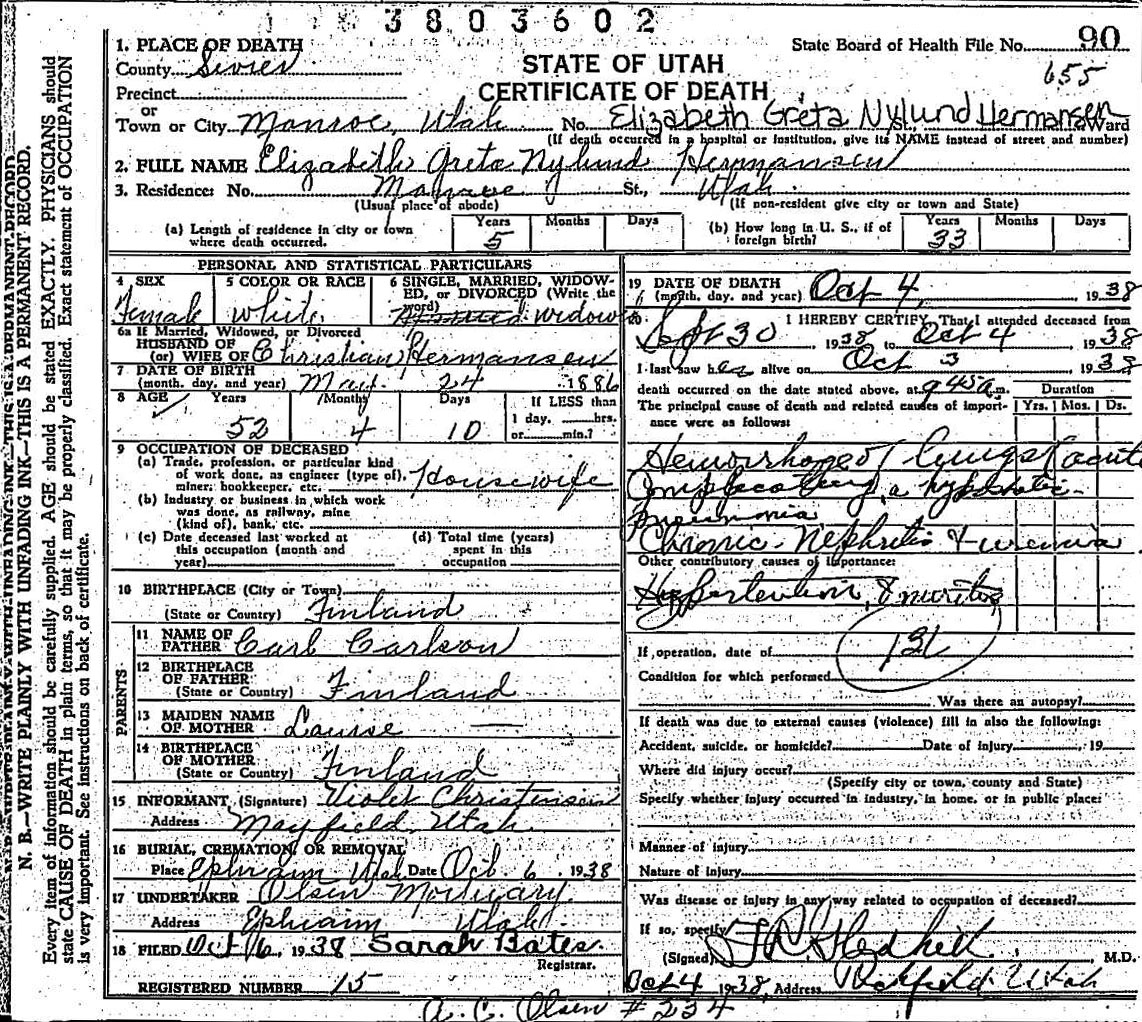 3803602
1. PLACE OF DEATH
State Board of Health File No. 90
County Sevier
STATE OF UTAH
655
Precinct
CERTIFICATE OF DEATH
or
Town or City Monroe, Utah No. Elizabeth Greta Nylund Hermansen St., Ward
(If death occurred in a hospital or institution, give its NAME instead of street and number)
2. FULL NAME Elizabeth Greta Nylund Hermansen
3. Residence: No. Monroe St., Utah
(Usual place of abode) (If non-resident give city or town and State)
(a) Length of residence in city or town where death occurred. Years 5 Months Days
(b) How long in U. S., if of foreign birth? Years 33 Months Days
PERSONAL AND STATISTICAL PARTICULARS
4 SEX Female
5 COLOR OR RACE white
6 SINGLE, MARRIED, WIDOWED, or DIVORCED (Write the word) widow
6a If Married, Widowed, or Divorced
HUSBAND OF
(or) WIFE OF Christian Hermansen
7 DATE OF BIRTH
(month, day, and year) May 24 1886
8 AGE Years Months Days If LESS than
1 day, hrs.
52 4 10 or min.?
9 OCCUPATION OF DECEASED
(a) Trade, profession, or particular kind
of work done, as engineer (type of), Housewife
miner, bookkeeper, etc.
(b) Industry or business in which work
was done, as railway, mine
(kind of), bank, etc.
(c) Date deceased last worked at
this occupation (month and
year)
(d) Total time (years)
spent in this
occupation
10 BIRTHPLACE (City or Town)
(State or Country) Finland
PARENTS
11 NAME OF
FATHER Carl Carlson
12 BIRTHPLACE
OF FATHER
(State or Country) Finland
13 MAIDEN NAME
OF MOTHER Louise —
14 BIRTHPLACE
OF MOTHER
(State or Country) Finland
15 INFORMANT (Signature) Violet Christensen
Address Mayfield, Utah.
16 BURIAL, CREMATION, OR REMOVAL
Place Ephraim Utah Date Oct. 6 1938
17 UNDERTAKER Olsen Mortuary
Address Ephraim Utah.
18 FILED Oct 6, 1938 Sarah Bates.
Registrar.
REGISTERED NUMBER 15
19 DATE OF DEATH
(month, day, and year) Oct 4, 1938
20 I HEREBY CERTIFY, That I attended deceased from
Sept 30 1938 to Oct 4 1938
I last saw her alive on Oct 3 1938
death occurred on the date stated above, at 9 45 a m.
The principal cause of death and related causes of importance were as follows:
Duration
Yrs. Mos. Ds.
Hemorrhage of lungs acute
Complicating a hypostatic
pneumonia
Chronic Nephritis & uremia
Other contributory causes of importance:
Hypertention, & neuritis
131
If operation, date of
Condition for which performed
Was there an autopsy?
If death was due to external causes (violence) fill in also the following:
Accident, suicide, or homicide? Date of injury , 19
Where did injury occur?
(Specify city or town, county and State)
Specify whether injury occurred in industry, in home, or in public place:
Manner of injury
Nature of injury
Was disease or injury in any way related to occupation of deceased?
If so, specify
(Signed) T R Gledhill M.D.
Oct 4 1938, Address Richfield Utah
A. C. Olsen # 234
N. B.—WRITE PLAINLY WITH UNFADING INK—THIS IS A PERMANENT RECORD.
Every item of information should be carefully supplied. AGE should be stated EXACTLY. PHYSICIANS should
state CAUSE OF DEATH in plain terms, so that it may be properly classified. Exact statement of OCCUPATION
is very important. See instructions on back of certificate.